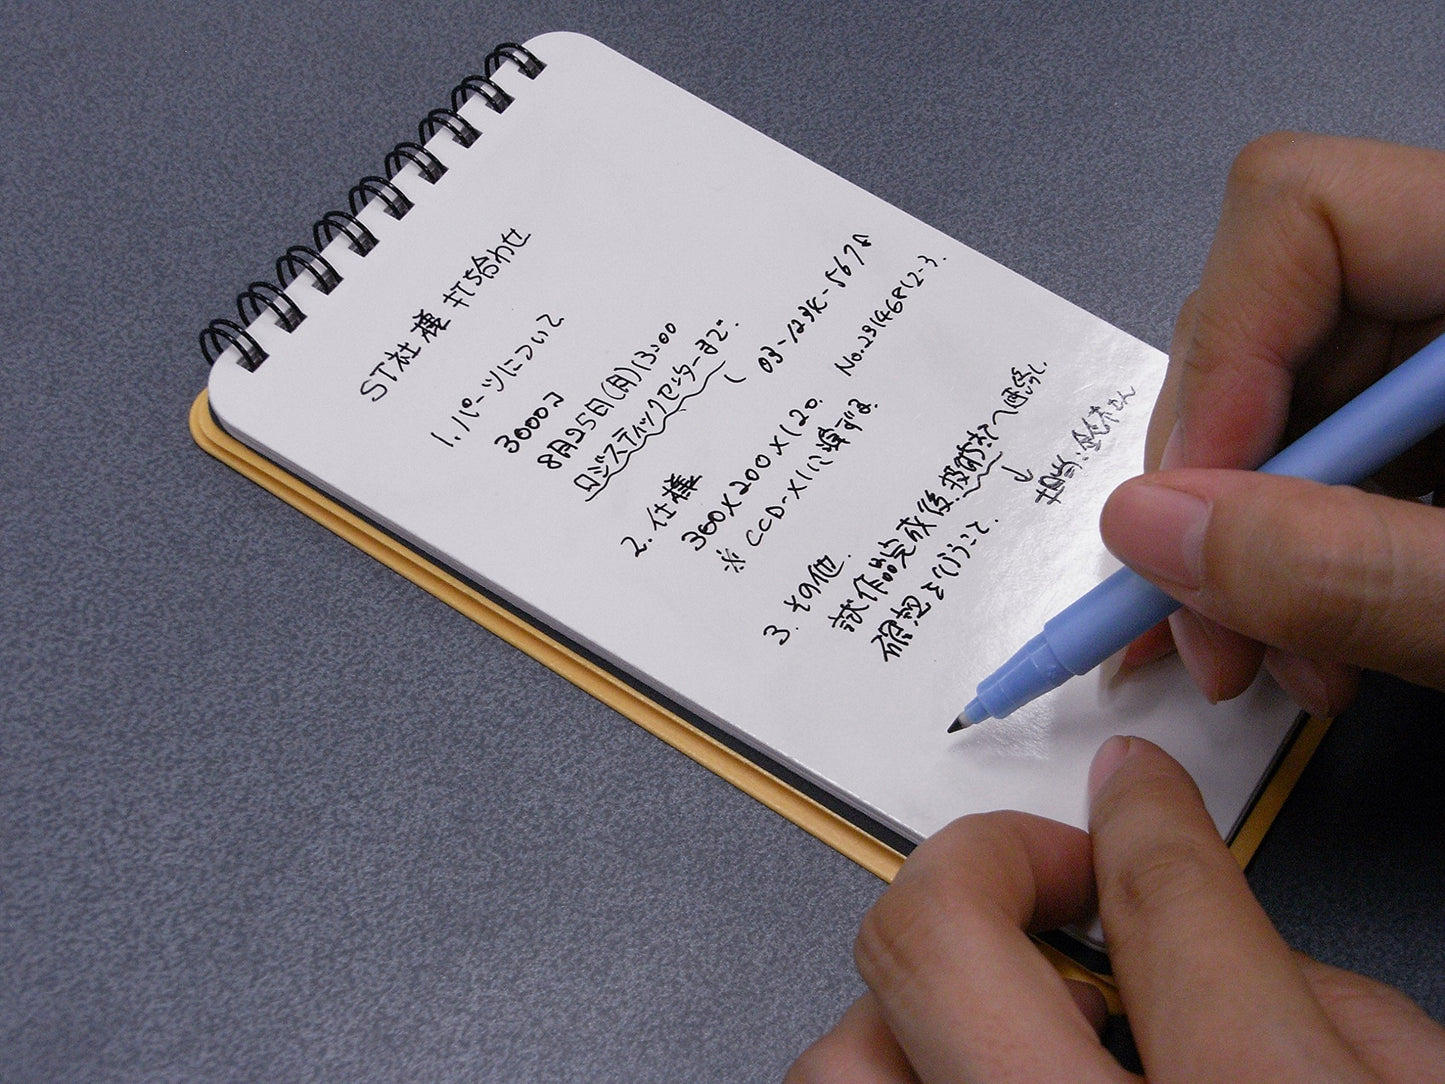 ST社様 打ち合わせ
1. パーツについて
3000コ
8月25日(月)13:00
ロジスティックセンターまで.
03-1234-5678
No.23146812-3.
2. 仕様
360×200×120.
※ CCD-X1に準ずる
3. その他.
試作品完成後.技術部へ連絡し.
確認をとりうこと.
↓
担当:鈴木さん